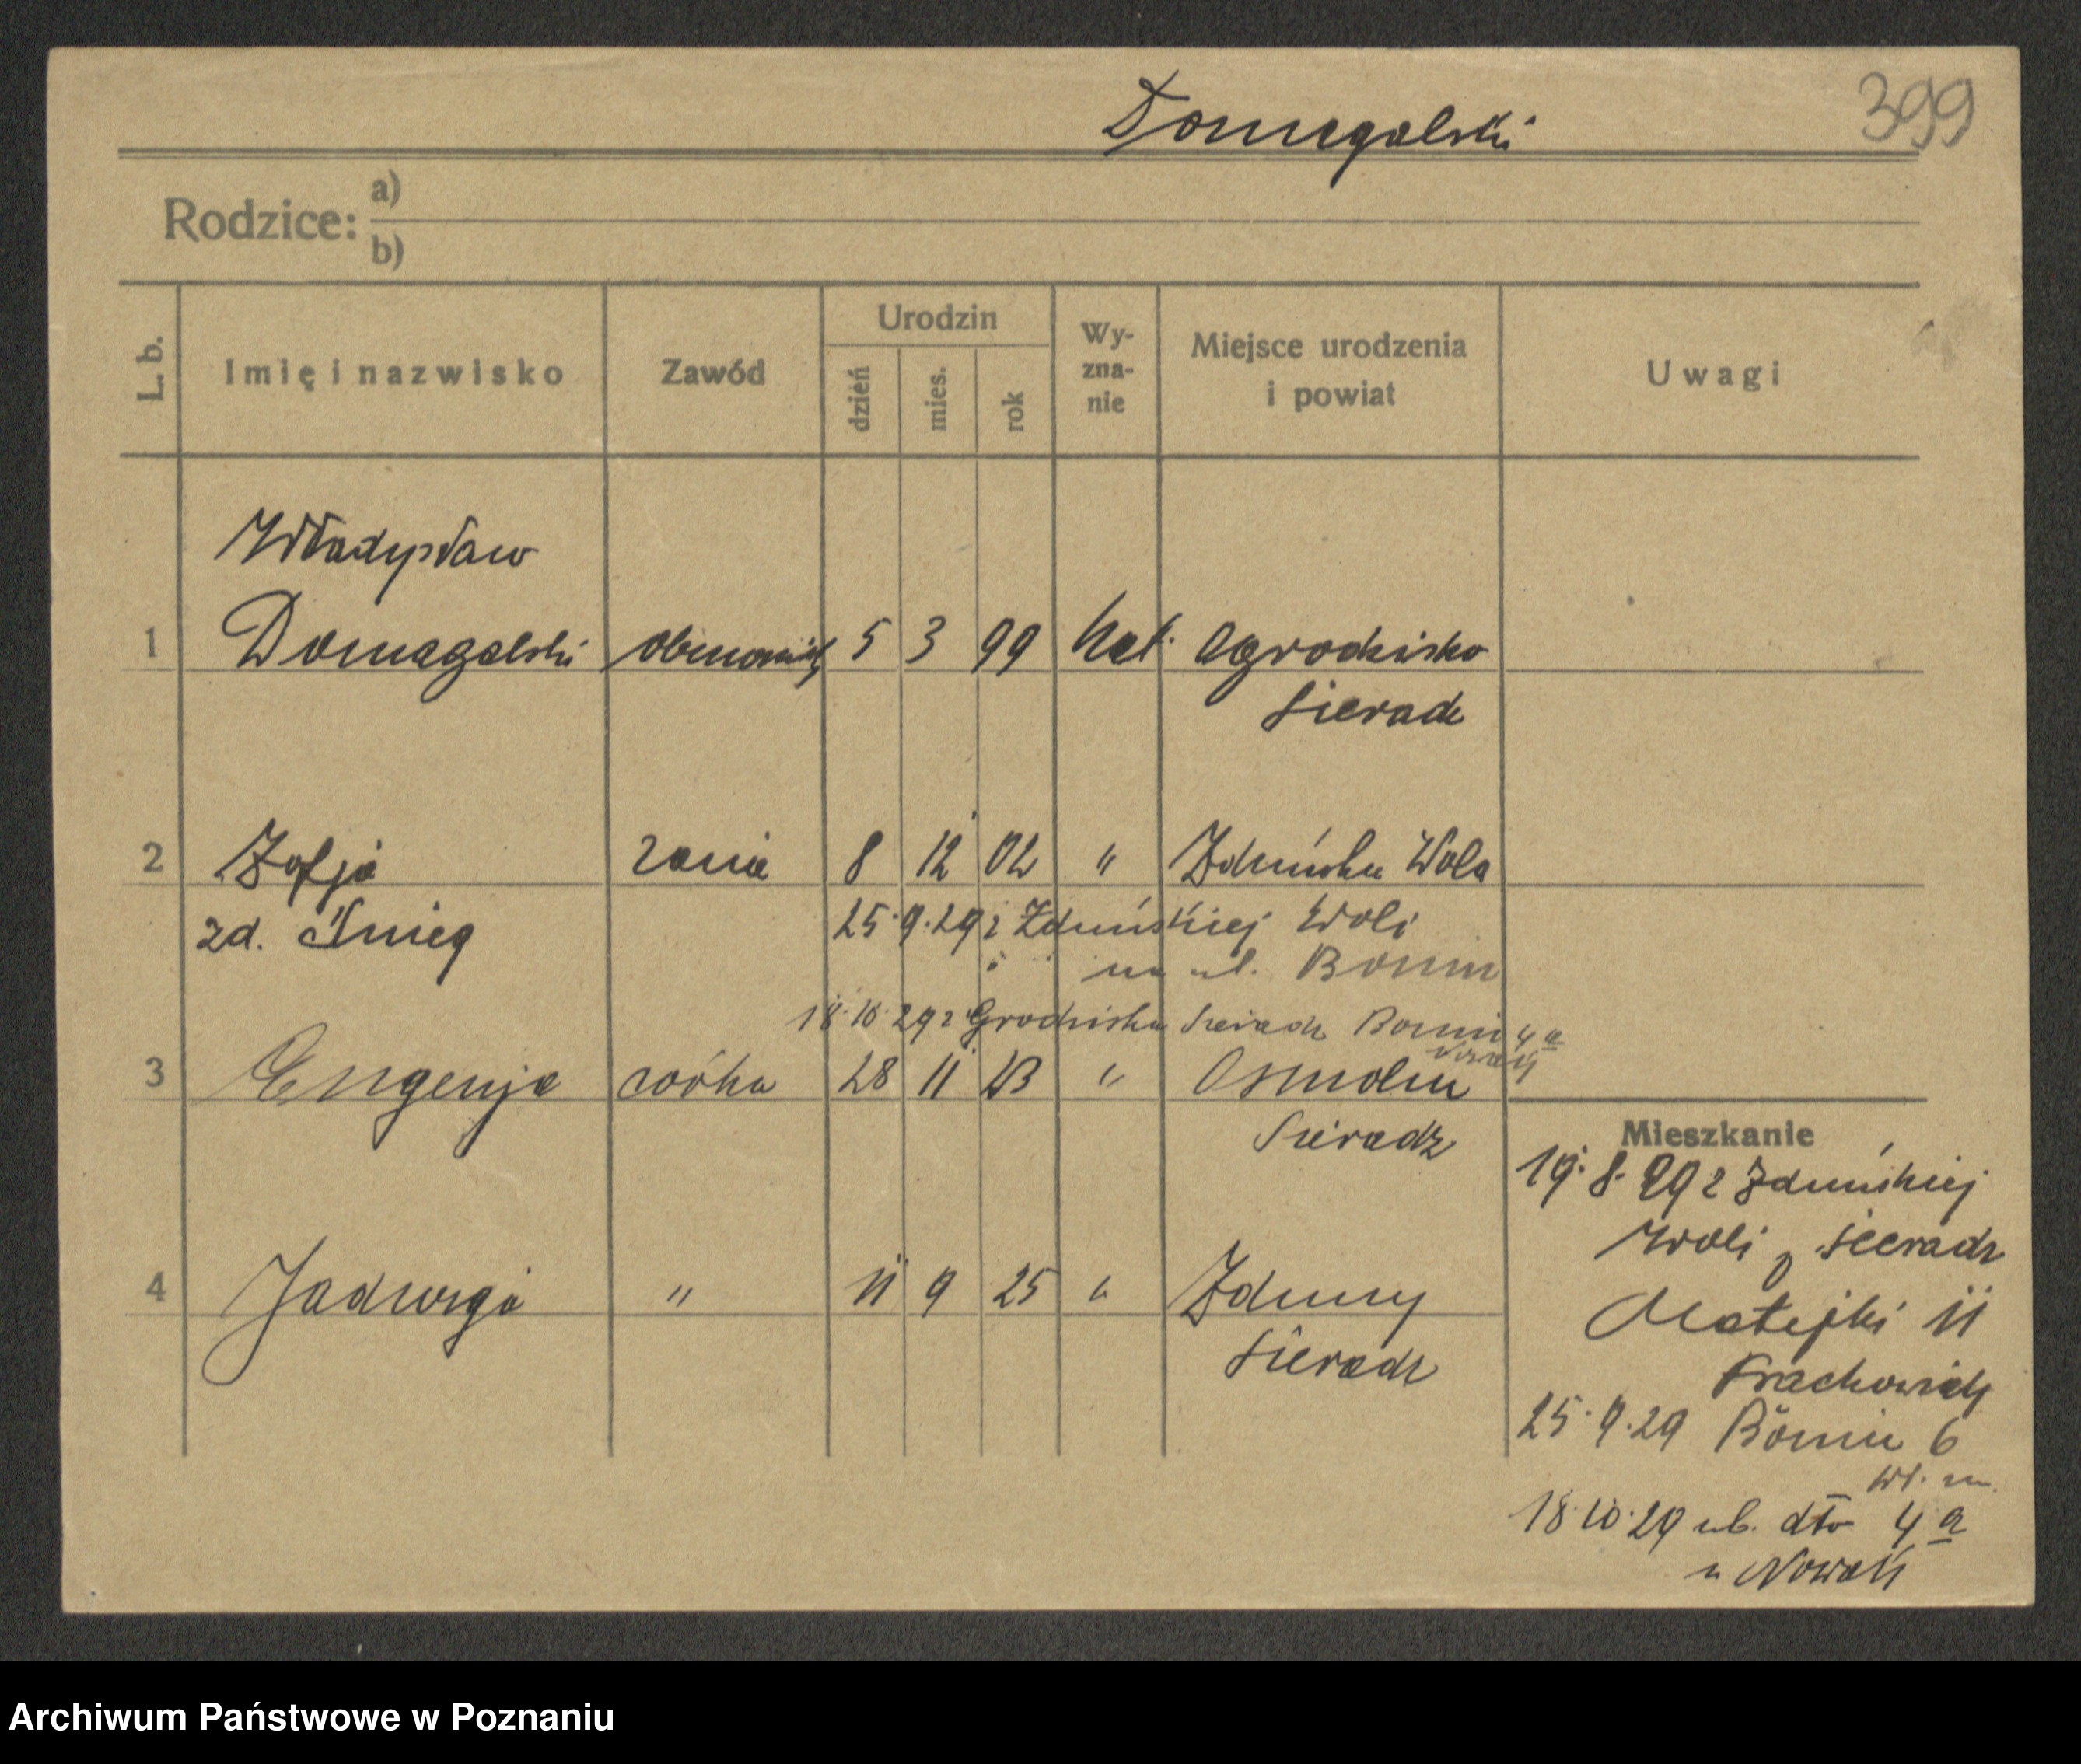 Domagalski
399
Rodzice: a)
b)
L. b.
Imię i nazwisko
Zawód
Urodzin
dzień
mies.
rok
Wy-
zna-
nie
Miejsce urodzenia
i powiat
Uwagi
Władysław
1 Domagalski 5 3 99 kat. Ogrodzisko
Sieradz
2 Zofja żona 8 12 02 " Zduńska Wola
zd. Śnieg 25.9.29 z Zduńskiej Woli
na ul. Bonin
18.10.29 z Grodziska Sieradz Bonin 4a
Nowak
3 Eugenja córka 28 11 23 " Osmolin
Sieradz
Mieszkanie
19.8.29 z Zduńskiej
Woli p Sieradz
4 Jadwiga " 11 9 25 " Zduny
Sieradz
Matejki 11
25.9.29 Bonin 6
18.10.29 ul. dto 4a
u Nowak
Archiwum Państwowe w Poznaniu